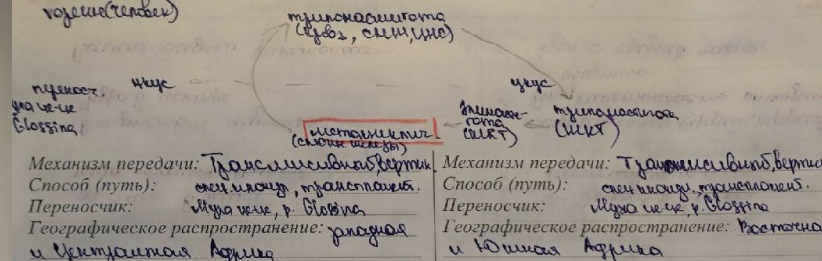 хозяин(человек)
трипомастигота
(кровь, СМЖ, ЦНС)
перенос.
муха це-це
Glossina
укус
укус
метациклич.
(слюн. железы)
эпимасти-
гота
(ЖКТ)
трипомастигота
(ЖКТ)
Механизм передачи: Трансмиссивный, вертик.
Способ (путь): спец. инокул., трансплацент.
Переносчик: Муха це-це, р. Glossina
Географическое распространение: Западная
и Центральная Африка
Механизм передачи: Трансмиссивный, вертик
Способ (путь): спец. инокул., трансплацент.
Переносчик: Муха це-це, р. Glossina
Географическое распространение: Восточная
и Южная Африка